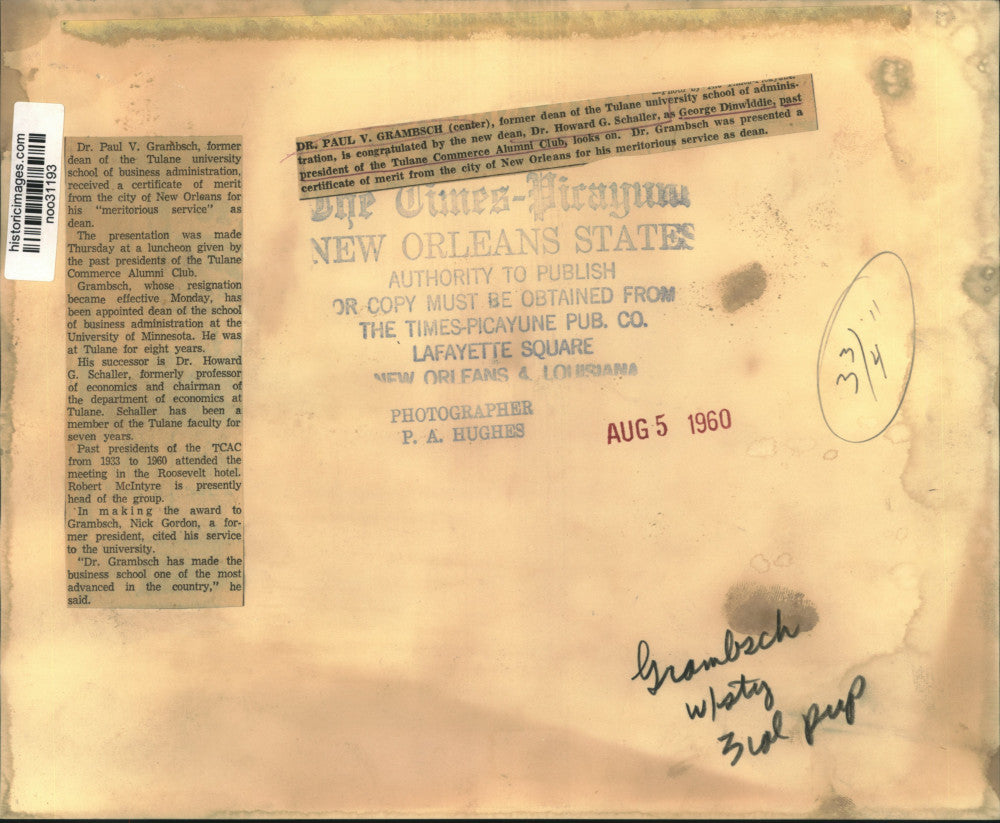 historicimages.com
noo31193
Dr. Paul V. Grambsch, former
dean of the Tulane university
school of business administration,
received a certificate of merit
from the city of New Orleans for
his "meritorious service" as
dean.
The presentation was made
Thursday at a luncheon given by
the past presidents of the Tulane
Commerce Alumni Club.
Grambsch, whose resignation
became effective Monday, has
been appointed dean of the school
of business administration at the
University of Minnesota. He was
at Tulane for eight years.
His successor is Dr. Howard
G. Schaller, formerly professor
of economics and chairman of
the department of economics at
Tulane. Schaller has been a
member of the Tulane faculty for
seven years.
Past presidents of the TCAC
from 1933 to 1960 attended the
meeting in the Roosevelt hotel.
Robert McIntyre is presently
head of the group.
In making the award to
Grambsch, Nick Gordon, a for-
mer president, cited his service
to the university.
"Dr. Grambsch has made the
business school one of the most
advanced in the country," he
said.
DR. PAUL V. GRAMBSCH (center), former dean of the Tulane university school of adminis-
tration, is congratulated by the new dean, Dr. Howard G. Schaller, as George Dinwiddie, past
president of the Tulane Commerce Alumni Club, looks on. Dr. Grambsch was presented a
certificate of merit from the city of New Orleans for his meritorious service as dean.
The Times-Picayune
NEW ORLEANS STATES
AUTHORITY TO PUBLISH
OR COPY MUST BE OBTAINED FROM
THE TIMES-PICAYUNE PUB. CO.
LAFAYETTE SQUARE
NEW ORLEANS 4, LOUISIANA
PHOTOGRAPHER
P. A. HUGHES
AUG 5 1960
Grambsch
w/sty
3 col pup